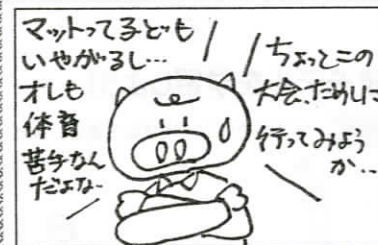 マットって子ども
いやがるし…
オレも
体育
苦手なん
だよな…
ちょっとこの
大会、ためしに
行ってみよう
か…